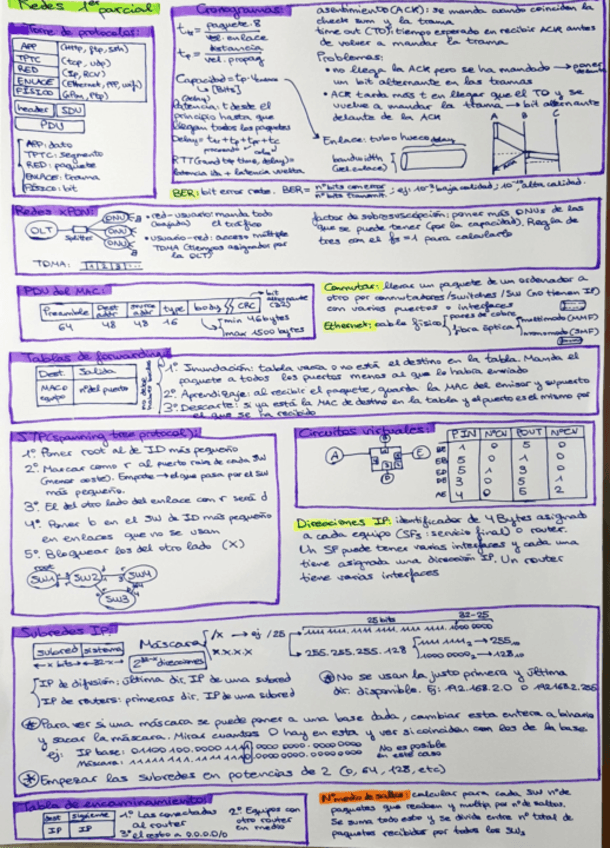 Redes 1er parcial
Torre de protocolos:
APP (http, ftp, ssh)
TPTC (tcp, udp)
RED (IP, RCV)
ENLACE (Ethernet, PPP, wifi)
FÍSICO
header SDU
PDU
APP: dato
TPTC: segmento
RED: paquete
ENLACE: trama
FÍSICO: bit
Cronogramas:
tw = paquete·8 / vel. enlace
tp = distancia / vel. propag
Capacidad = tp·venlace
↳ [Bits]
(delay)
Latencia: t desde el
principio hasta que
llegan todos los paquetes
Delay = tw + tp + tp + tc
RTT (round trip time, delay) =
latencia ida + latencia vuelta
asentimiento (ACK): se manda cuando coinciden la
check sum y la trama
time out (TO): tiempo esperado en recibir ACK antes
de volver a mandar la trama
Problemas:
• no llega la ACK pero se ha mandado → poner
un bit alternante en las tramas
• ACK tarda más t en llegar que el TO y se
vuelve a mandar la trama → bit alternante
delante de la ACK
Enlace: tubo hueco
delay
bandwidth
(vel. enlace)
A B C
BER: bit error rate. BER = nº bits con error / nº bits transmit.; ej: 10⁻³ baja calidad; 10⁻ alta calidad.
Redes xPON:
OLT splitter ONU ONU ONU
TDMA: 1 2 3
• red-usuario: manda todo
(bajada) el tráfico
• usuario-red: acceso múltiple
TDMA (tiempos asignador por
la OLT)
factor de sobresuscripción: poner más ONUs de las
que se puede tener (por la capacidad). Regla de
tres con el fs=1 para calcularlo
PDU del MAC:
Preamble Dest addr source addr type body CRC
64 48 48 16
bit alternante
min 46 bytes
max 1500 bytes
Conmutar: llevar un paquete de un ordenador a
otro por conmutadores/switches/SW (no tienen IP)
con varios puertos o interfaces
Ethernet: cable físico pares de cobre
fibra óptica multimodo (MMF)
monomodo (SMF)
Tablas de forwarding:
Dest. Salida
MACs equipo nº del puerto
1º Inundación: tabla vacía o no está el destino en la tabla. Manda el
paquete a todos los puertos menos al que lo había enviado
2º Aprendizaje: al recibir el paquete, guarda la MAC del emisor y su puerto
3º Descarte: si ya está la MAC de destino en la tabla y el puerto es el mismo por
el que se ha recibido
STP (spanning tree protocol):
1º Poner root al de ID más pequeño
2º Marcar como r al puerto raíz de cada SW
(menor coste). Empate → el que pasa por el SW
más pequeño.
3º El del otro lado del enlace con r será d
4º Poner b en el SW de ID más pequeño
en enlaces que no se usan
5º Bloquear los del otro lado (X)
root
SW1 SW2 SW4
SW3
Circuitos virtuales:
A B E D
PIN NºCV POUT NºCV
BE 1 0 5 0
EB 5 0 1 0
ED 5 1 3 0
DE 3 0 5 1
AE 4 0 5 2
Direcciones IP: identificador de 4 Bytes asignado
a cada equipo (SFs: servicio final) o router.
Un SF puede tener varias interfaces y cada una
tiene asignada una dirección IP. Un router
tiene varias interfaces
Subredes IP:
subred sistema
←x bits→ ←32-x→
Máscara: /x → ej /25
x.x.x.x
25 bits 32-25
1111 1111. 1111 1111. 1111 1111. 1000 0000
255. 255. 255. 128
1111 1111₂ → 255₁₀
1000 0000₂ → 128₁₀
direcciones
IP de difusión: última dir. IP de una subred
IP de routers: primeras dir. IP de una subred
No se usan la justo primera y última
dir. disponible. Ej: 192.168.2.0 o 192.168.2.255
Para ver si una máscara se puede poner a una base dada, cambiar esta entera a binario
y sacar la máscara. Mirar cuantos 0 hay en esta y ver si coinciden con los de la base
ej: IP base: 0.1100 100.0000
Máscara:
No es posible
en este caso
Empezar las subredes en potencias de 2 (0, 64, 128, etc)
Tabla de encaminamientos:
Dest siguiente
IP IP
1º Las conectadas
al router
2º Equipos con
otro router
en medio
3º el resto a 0.0.0.0/0
Nº medio de saltos: calcular para cada SW nº de
paquetes que reciben y multip. por nº de saltos.
Se suma todo esto y se divide entre nº total de
paquetes recibidos por todos los SWs